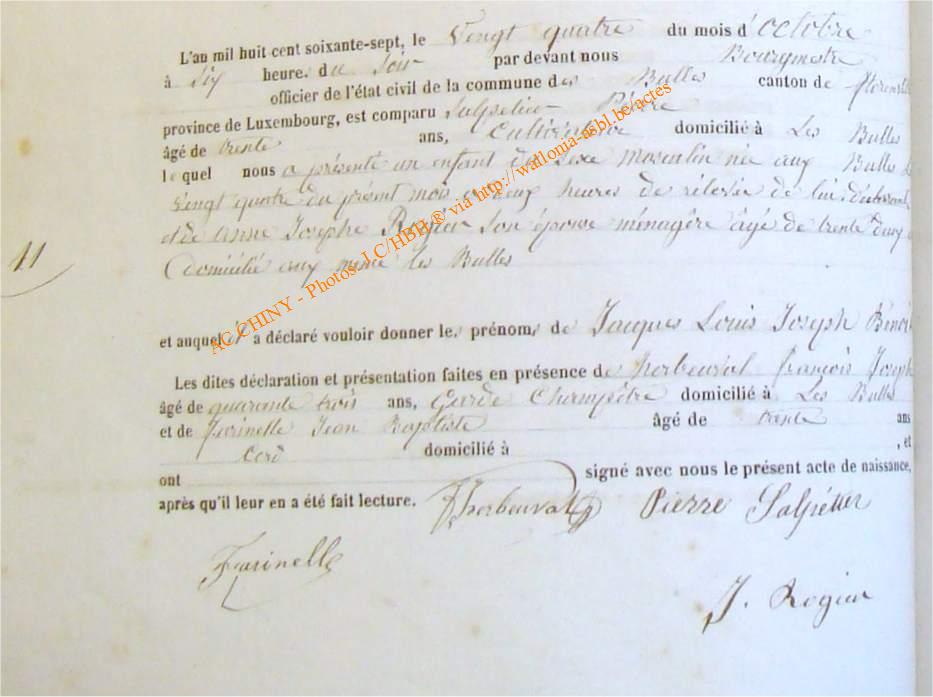 L'an mil huit cent soixante-sept, le Vingt quatre du mois d'Octobre
à Six heure. du Soir par devant nous Bourgmestre
officier de l'état civil de la commune des Bulles canton de
province de Luxembourg, est comparu Salpetier Pierre
âgé de trente ans, Cultivateur domicilié à Les Bulles
lequel nous a présenté un enfant de sexe masculin née aux Bulles
Vingt quatre du présent mois a deux heures de relevée de lui déclarant
et de Anne Josephe Rogier Son épouse ménagère âgé de trente deux
Domicilié aux même les Bulles
11
et auquel il a déclaré vouloir donner les prénoms de Jacques Louis Joseph
Les dites déclaration et présentation faites en présence de herbeuval françois Joseph
âgé de quarante trois ans, Garde Champêtre domicilié à Les Bulles
et de farinelle Jean Baptiste âgé de trente ans
domicilié à , et
ont signé avec nous le présent acte de naissance,
après qu'il leur en a été fait lecture.
Herbeuval Pierre Salpétier
Farinelle
J. Rogier
AC CHINY - Photos J.C/HBH ® via http://wallonia-asbl.be/actes